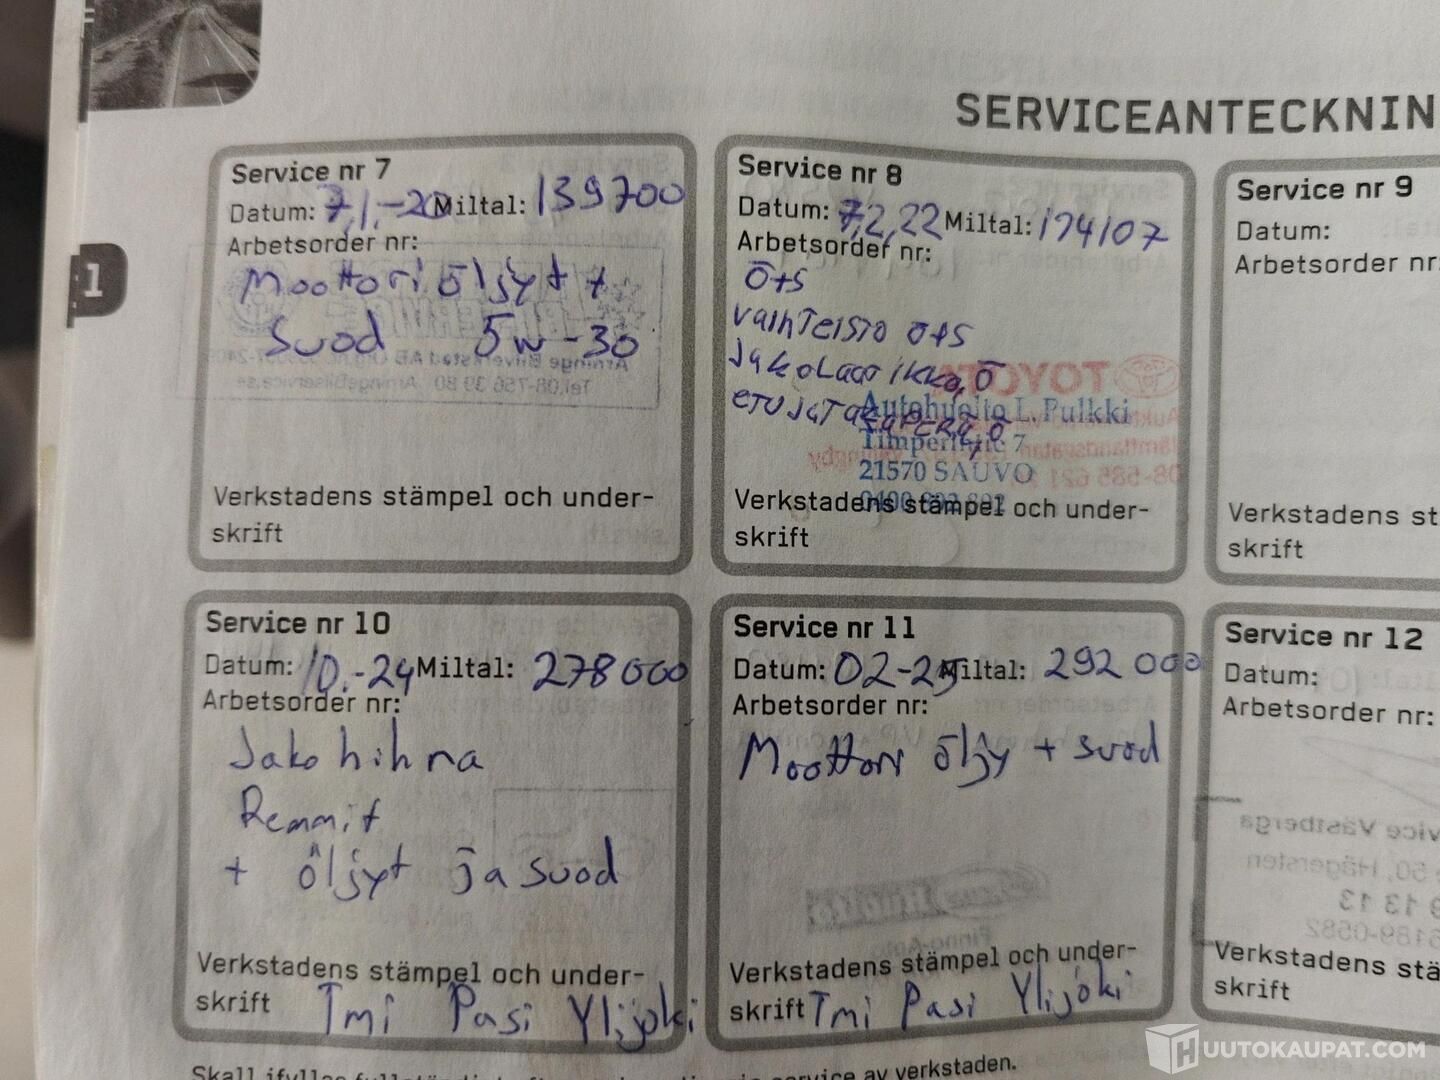 SERVICEANTECKNIN
1
Service nr 7
Datum: 7,1,-20 Miltal: 139700
Arbetsorder nr:
Moottori öljyt +
suod 5w-30
Verkstadens stämpel och under-
skrift
Service nr 8
Datum: 7,2,22 Miltal: 174107
Arbetsorder nr:
ö+s
vaihteisto ö+s
jakolaatikko, ö
etu ja taperä, ö
Autohuolto L. Pulkki
Timperintie 7
21570 SAUVO
Verkstadens stämpel och under-
skrift
Service nr 9
Datum:
Arbetsorder nr:
Verkstadens st
skrift
Service nr 10
Datum: 10.-24 Miltal: 278000
Arbetsorder nr:
Jakohihna
Remmit
+ öljyt ja suod
Verkstadens stämpel och under-
skrift Tmi Pasi Ylijoki
Service nr 11
Datum: 02-25 Miltal: 292 000
Arbetsorder nr:
Moottori öljy + suod
Verkstadens stämpel och under-
skrift Tmi Pasi Ylijoki
Service nr 12
Datum:
Arbetsorder nr:
Verkstadens stä
skrift
service av verkstaden.
HUUTOKAUPAT.COM